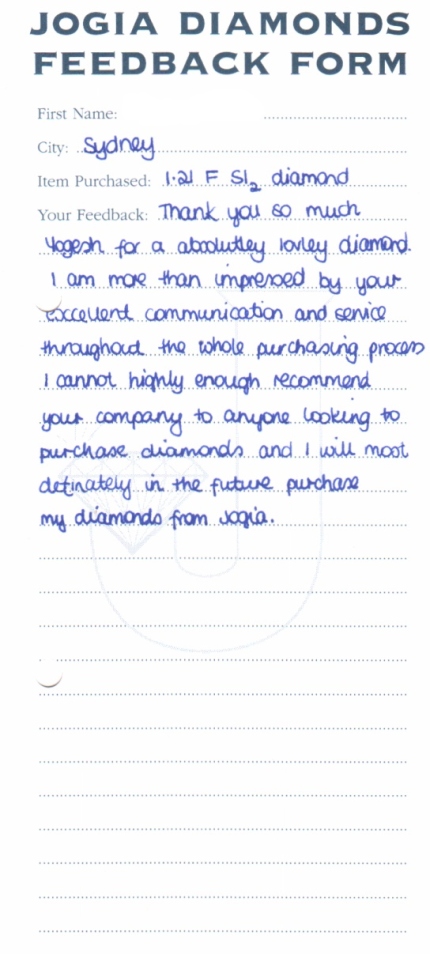 JOGIA DIAMONDS
FEEDBACK FORM
First Name:
City: Sydney
Item Purchased: 1.21 F SI₂ diamond
Your Feedback: Thank you so much
Yogesh for a absolutley lovley diamond.
I am more than impressed by your
excellent communication and service
throughout the whole purchasing process
I cannot highly enough recommend
your company to anyone looking to
purchase diamonds and I will most
definately in the future purchase
my diamonds from Jogia.